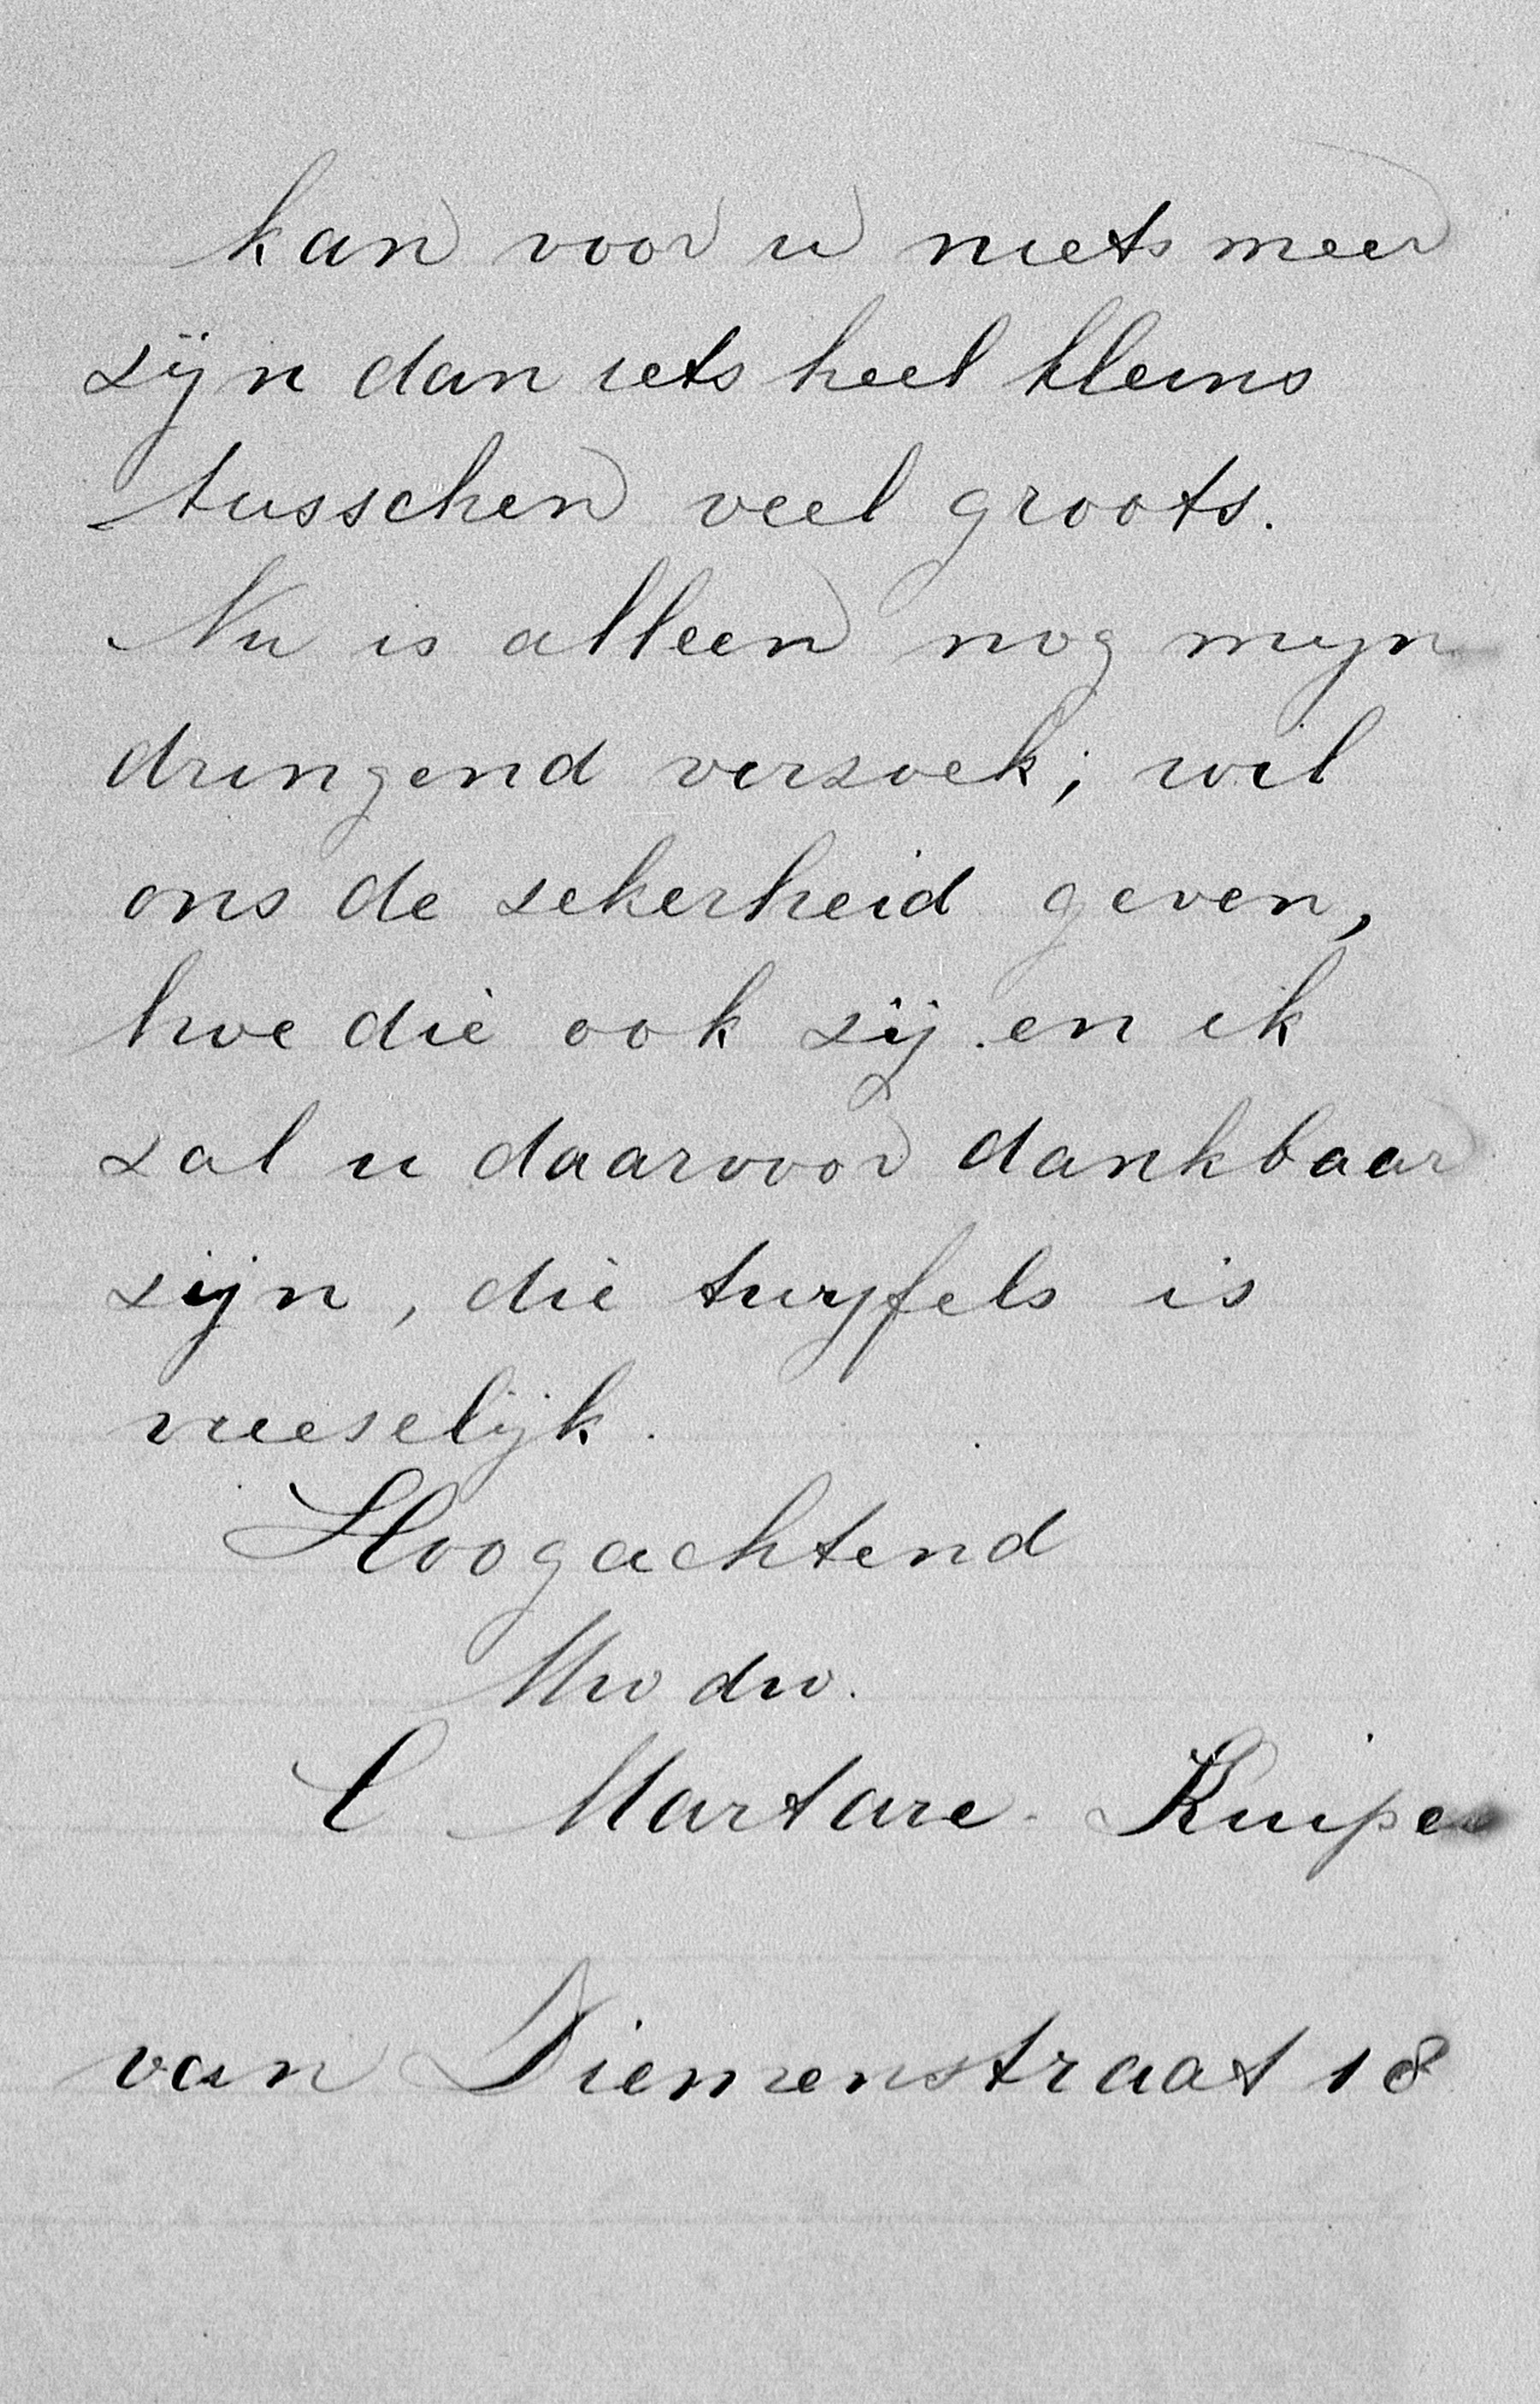 kan voor u niets meer
zijn dan iets heel kleins
tusschen veel groots.
Nu is alleen nog mijn
dringend verzoek; wil
ons de zekerheid geven,
hoe die ook zij en ik
zal u daarvoor dankbaar
zijn, die twijfels is
vreeselijk.
Hoogachtend
Uw dw.
C Martare - Kuiper
van Diemenstraat 18